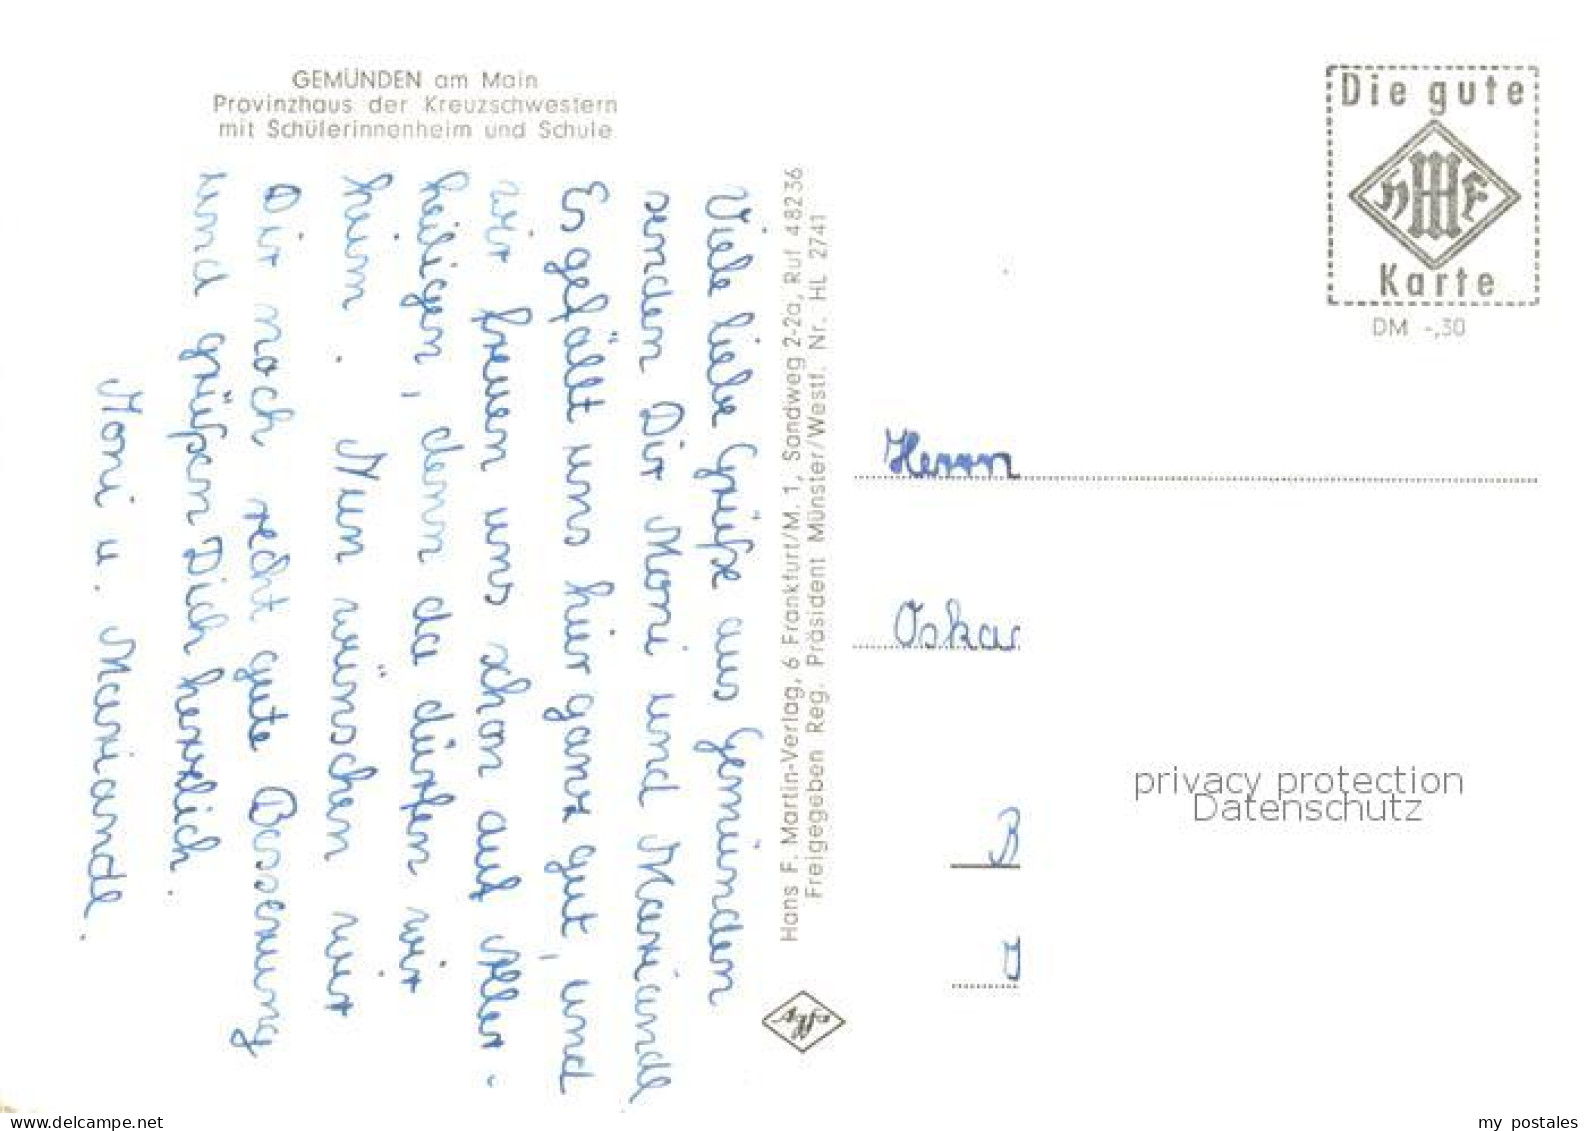 GEMÜNDEN am Main
Provinzhaus der Kreuzschwestern
mit Schülerinnenheim und Schule
Viele liebe Grüße aus Gemünden
senden Dir Moni und Mariande
Es gefällt uns hier ganz gut, und
wir freuen uns schon auf Aller-
heiligen, denn da dürfen wir
heim. Nun wünschen wir
Dir noch recht gute Besserung
und grüßen Dich herzlich.
Moni u. Mariande.
Hans F. Martin-Verlag, 6 Frankfurt/M. 1, Sandweg 2-2a, Ruf 48236
Freigegeben Reg. Präsident Münster/Westf. Nr. HL 2741
Die gute
H F
Karte
DM -,30
Herrn
Oskar
B
privacy protection
Datenschutz
delcampe.net
my_postales